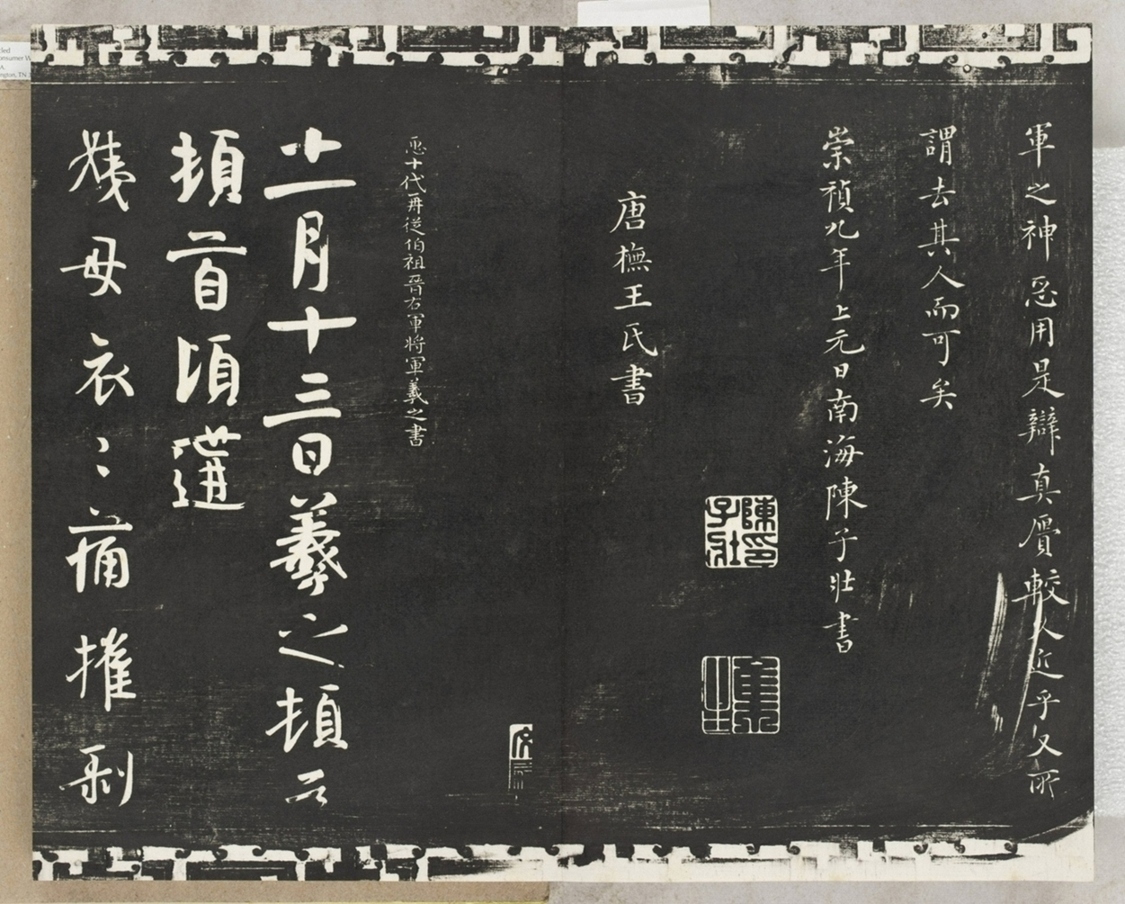 軍之神惡用是辯真贋較人近乎又所
謂去其人而可矣
崇禎九年上元日南海陳子壯書
陳子壯印
集生
唐橅王氏書
臣十代再從伯祖晉右軍將軍羲之書
十一月十三日羲之頓
頓首頃遘
姨母哀〻痛摧剥